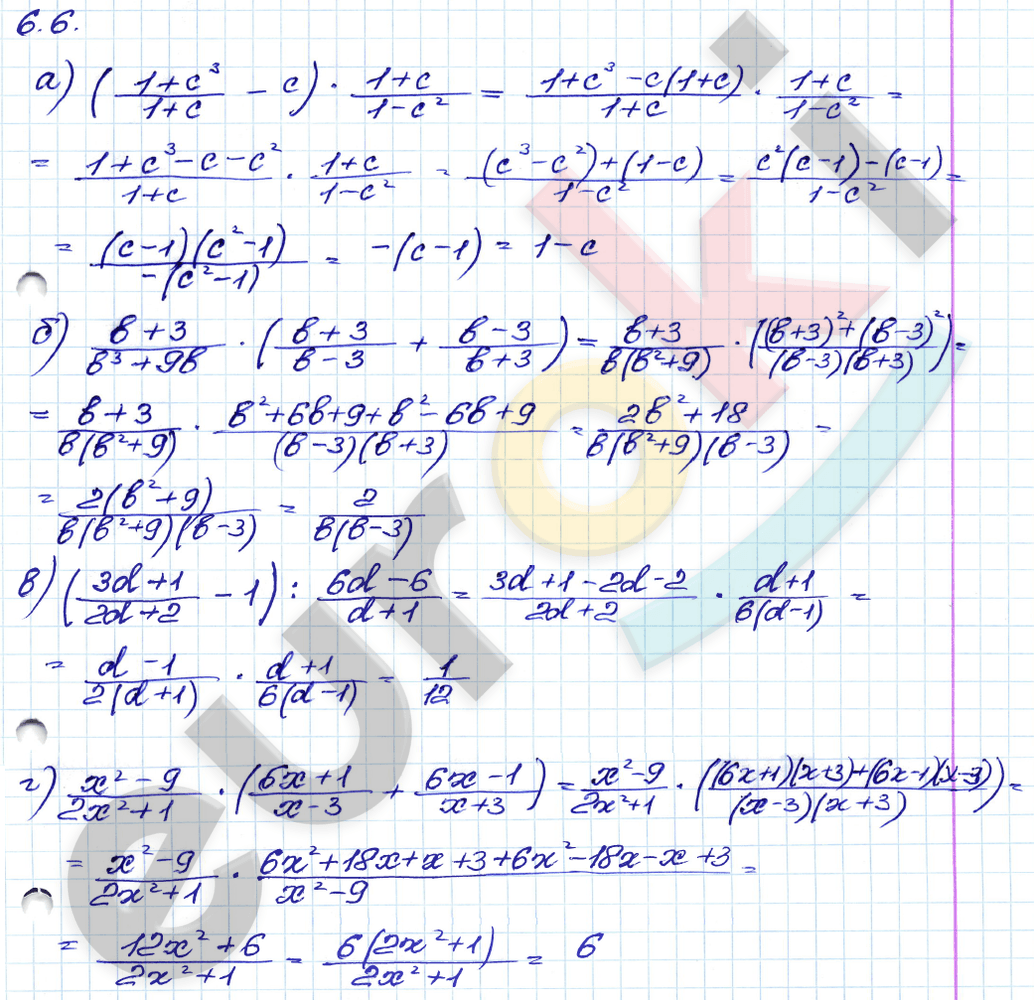 6.6.
а) ((1+c³)/(1+c) − c) · (1+c)/(1−c²) = (1+c³−c(1+c))/(1+c) · (1+c)/(1−c²) =
= (1+c³−c−c²)/(1+c) · (1+c)/(1−c²) = ((c³−c²)+(1−c))/(1−c²) = (c²(c−1)−(c−1))/(1−c²) =
= ((c−1)(c²−1))/(−(c²−1)) = −(c−1) = 1−c
б) (в+3)/(в³+9в) · ((в+3)/(в−3) + (в−3)/(в+3)) = (в+3)/(в(в²+9)) · (((в+3)²+(в−3)²)/((в−3)(в+3))) =
= (в+3)/(в(в²+9)) · (в²+6в+9+в²−6в+9)/((в−3)(в+3)) = (2в²+18)/(в(в²+9)(в−3)) =
= (2(в²+9))/(в(в²+9)(в−3)) = 2/(в(в−3))
в) ((3d+1)/(2d+2) − 1) : (6d−6)/(d+1) = (3d+1−2d−2)/(2d+2) · (d+1)/(6(d−1)) =
= (d−1)/(2(d+1)) · (d+1)/(6(d−1)) = 1/12
г) (x²−9)/(2x²+1) · ((6x+1)/(x−3) + (6x−1)/(x+3)) = (x²−9)/(2x²+1) · (((6x+1)(x+3)+(6x−1)(x−3))/((x−3)(x+3))) =
= (x²−9)/(2x²+1) · (6x²+18x+x+3+6x²−18x−x+3)/(x²−9) =
= (12x²+6)/(2x²+1) = (6(2x²+1))/(2x²+1) = 6
euroki